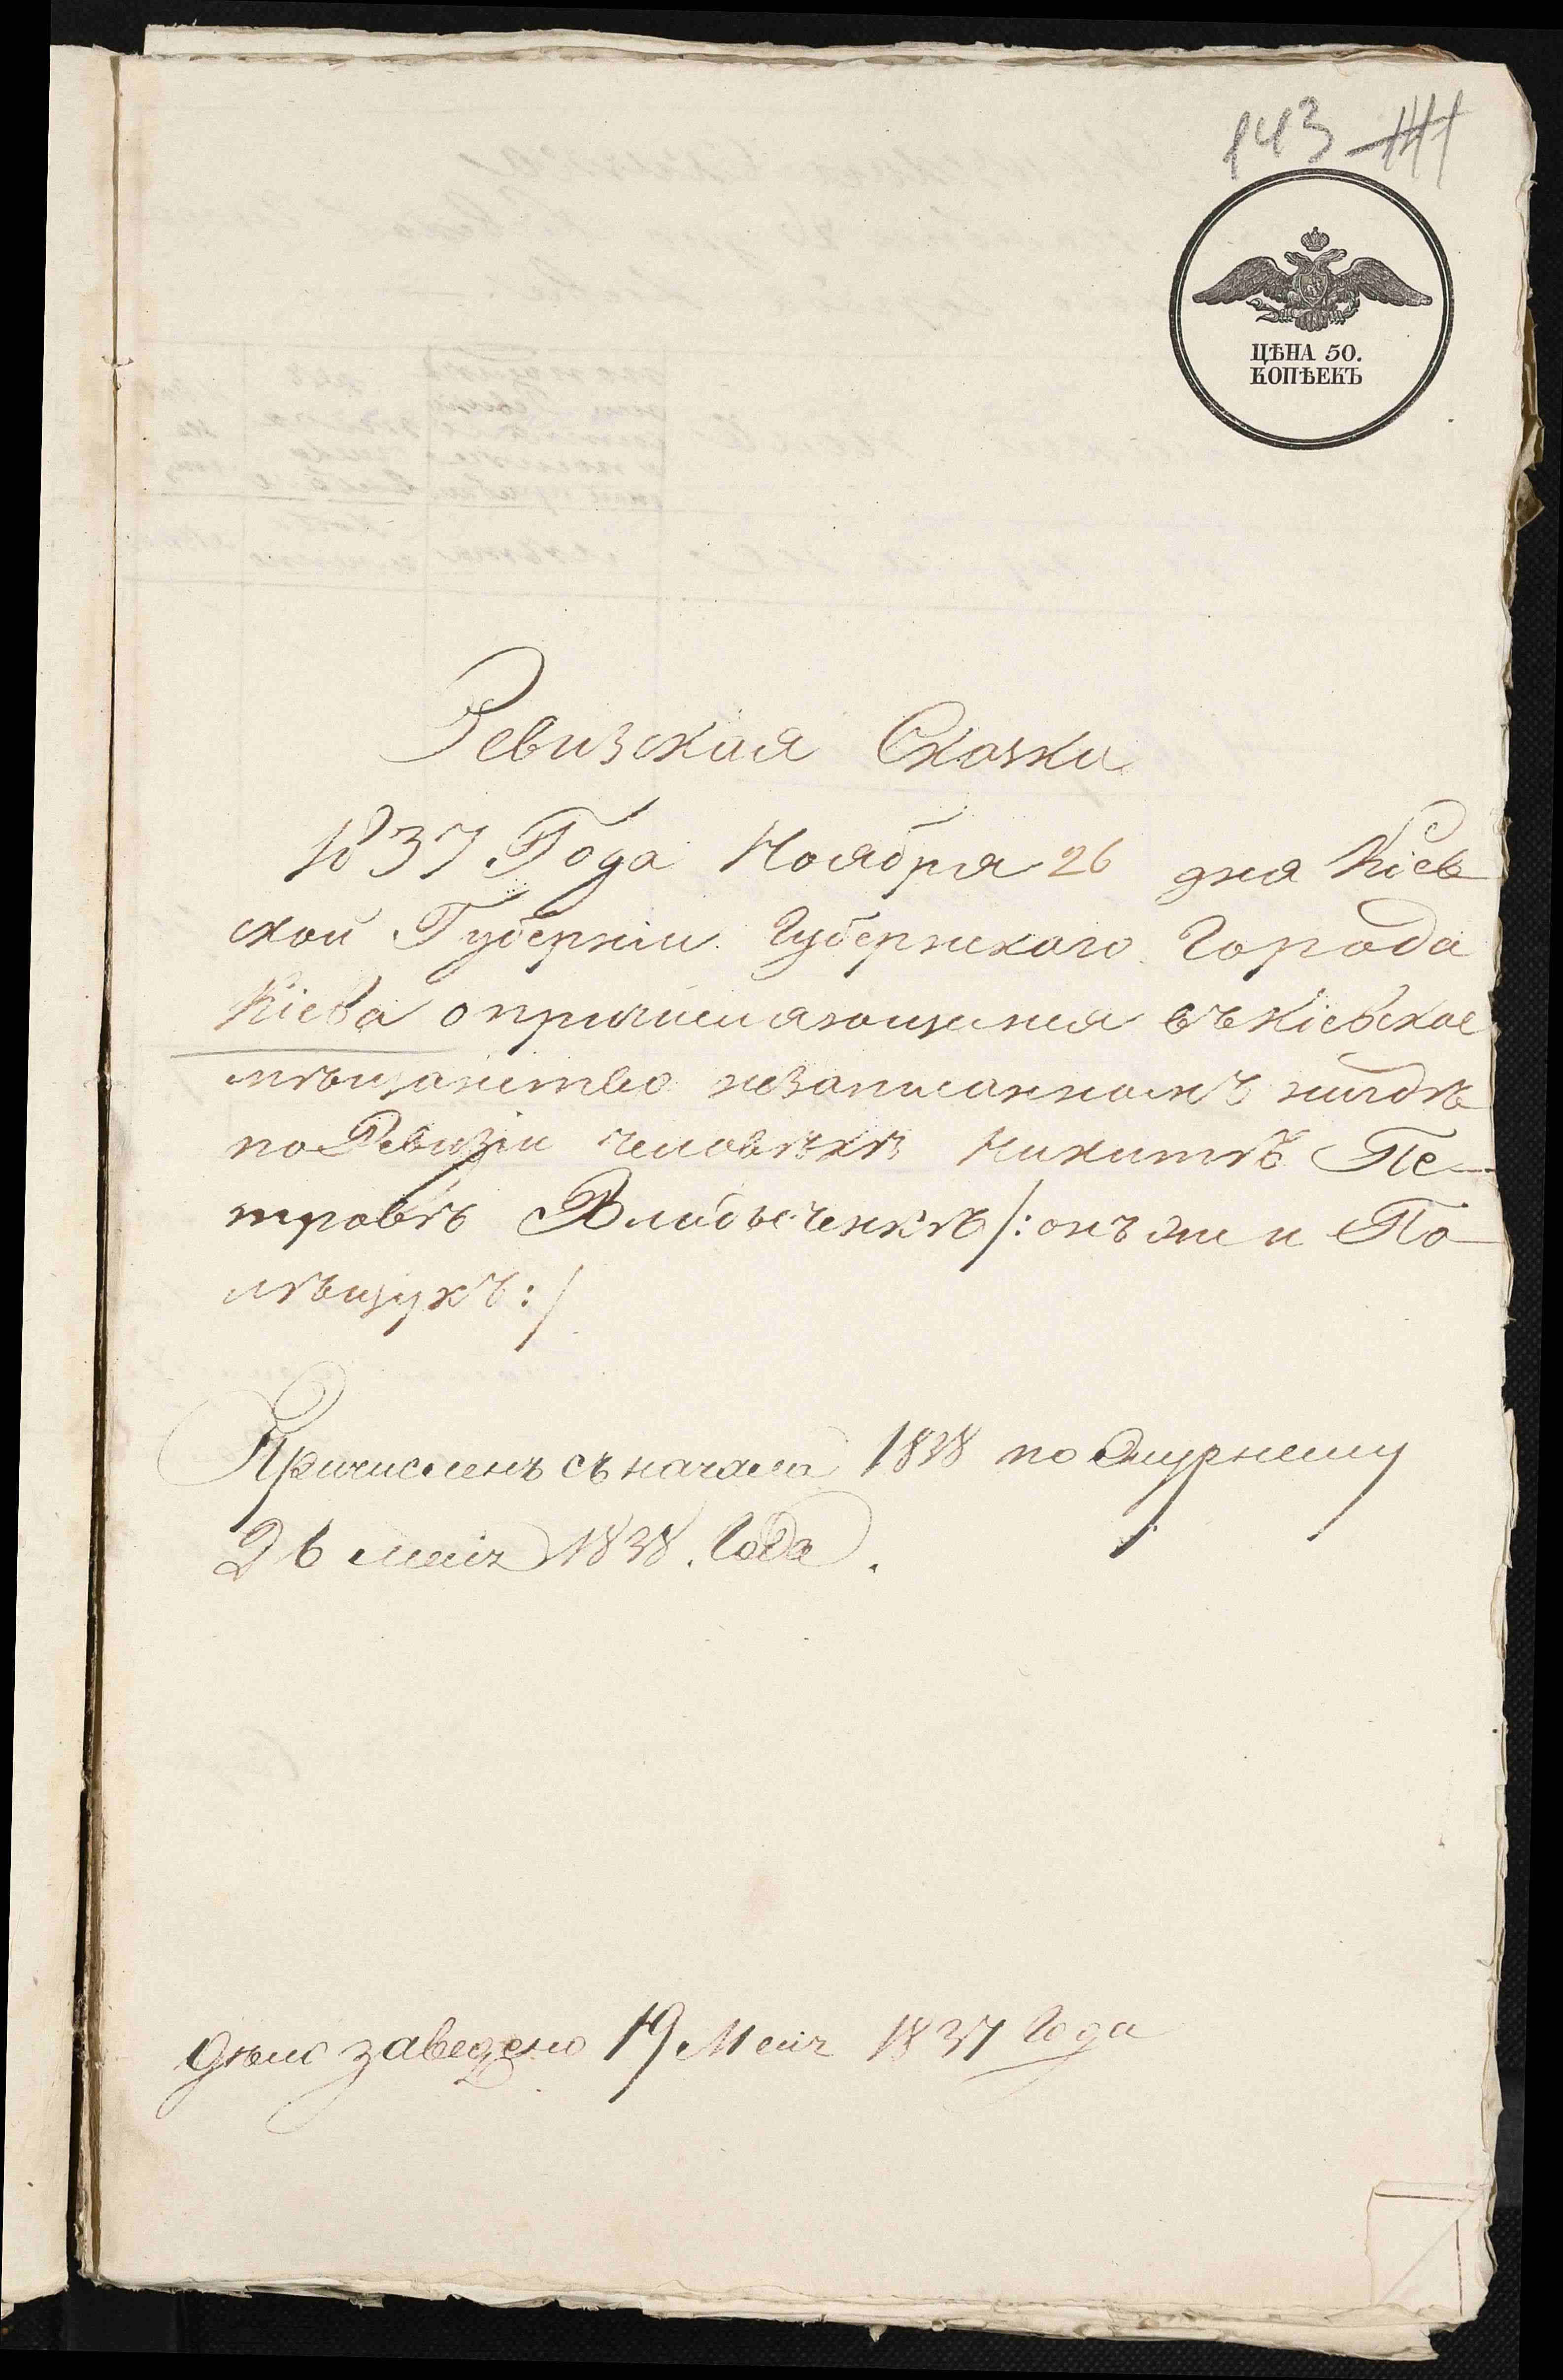 143
ЦѢНА 50.
КОПѢЕКЪ
Ревизская Сказка
1837 Года Ноября 26 дня Кіев
ской Губерніи Губернского Города
Кіева о причисляющемся въ Кіевское
мѣщанство незаписанномъ нигдѣ
по Ревизіи человѣкѣ Никитѣ Пе-
тровѣ /: онъ же и По
лѣщукъ :/
Причисленъ съ начала 1838 по
26 1838. Года.
Дѣло заведено 19 1837 Года